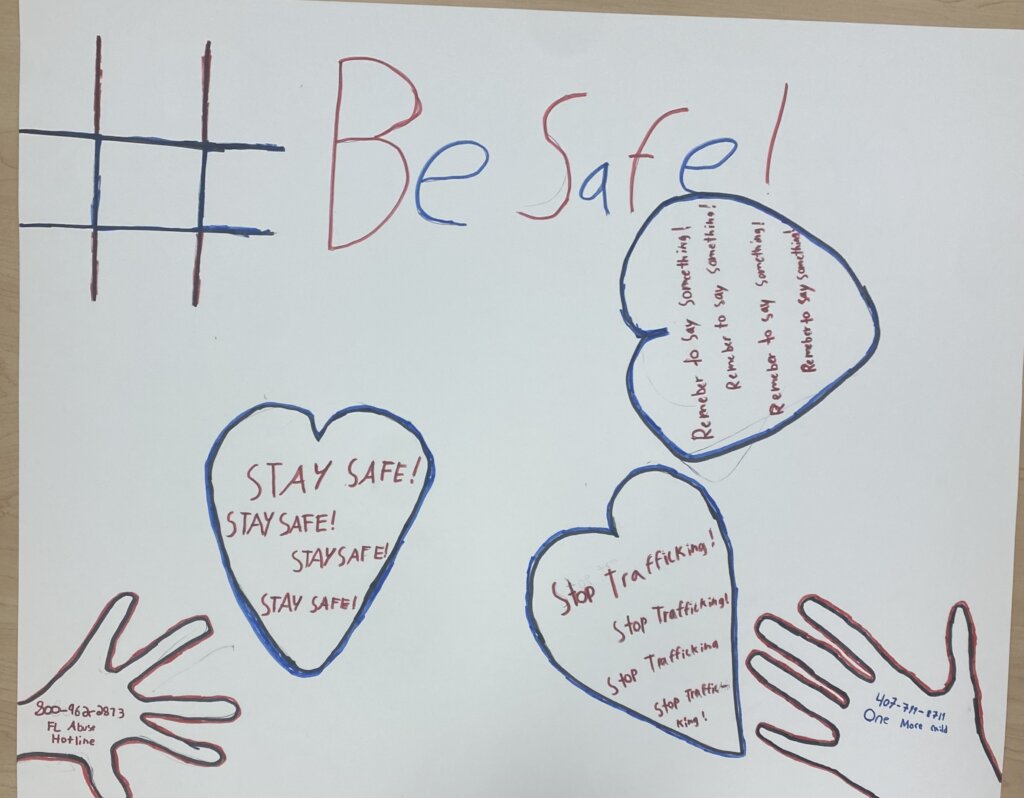 #Be Safe!
Remeber to say something!
Remeber to say something!
Remeber to say something!
Remeber to say something!
STAY SAFE!
STAY SAFE!
STAY SAFE!
STAY SAFE!
Stop Trafficking!
Stop Trafficking!
Stop Trafficking
Stop Traffic-
king!
800-962-2873
FL Abuse
Hotline
407-711-8711
One More child